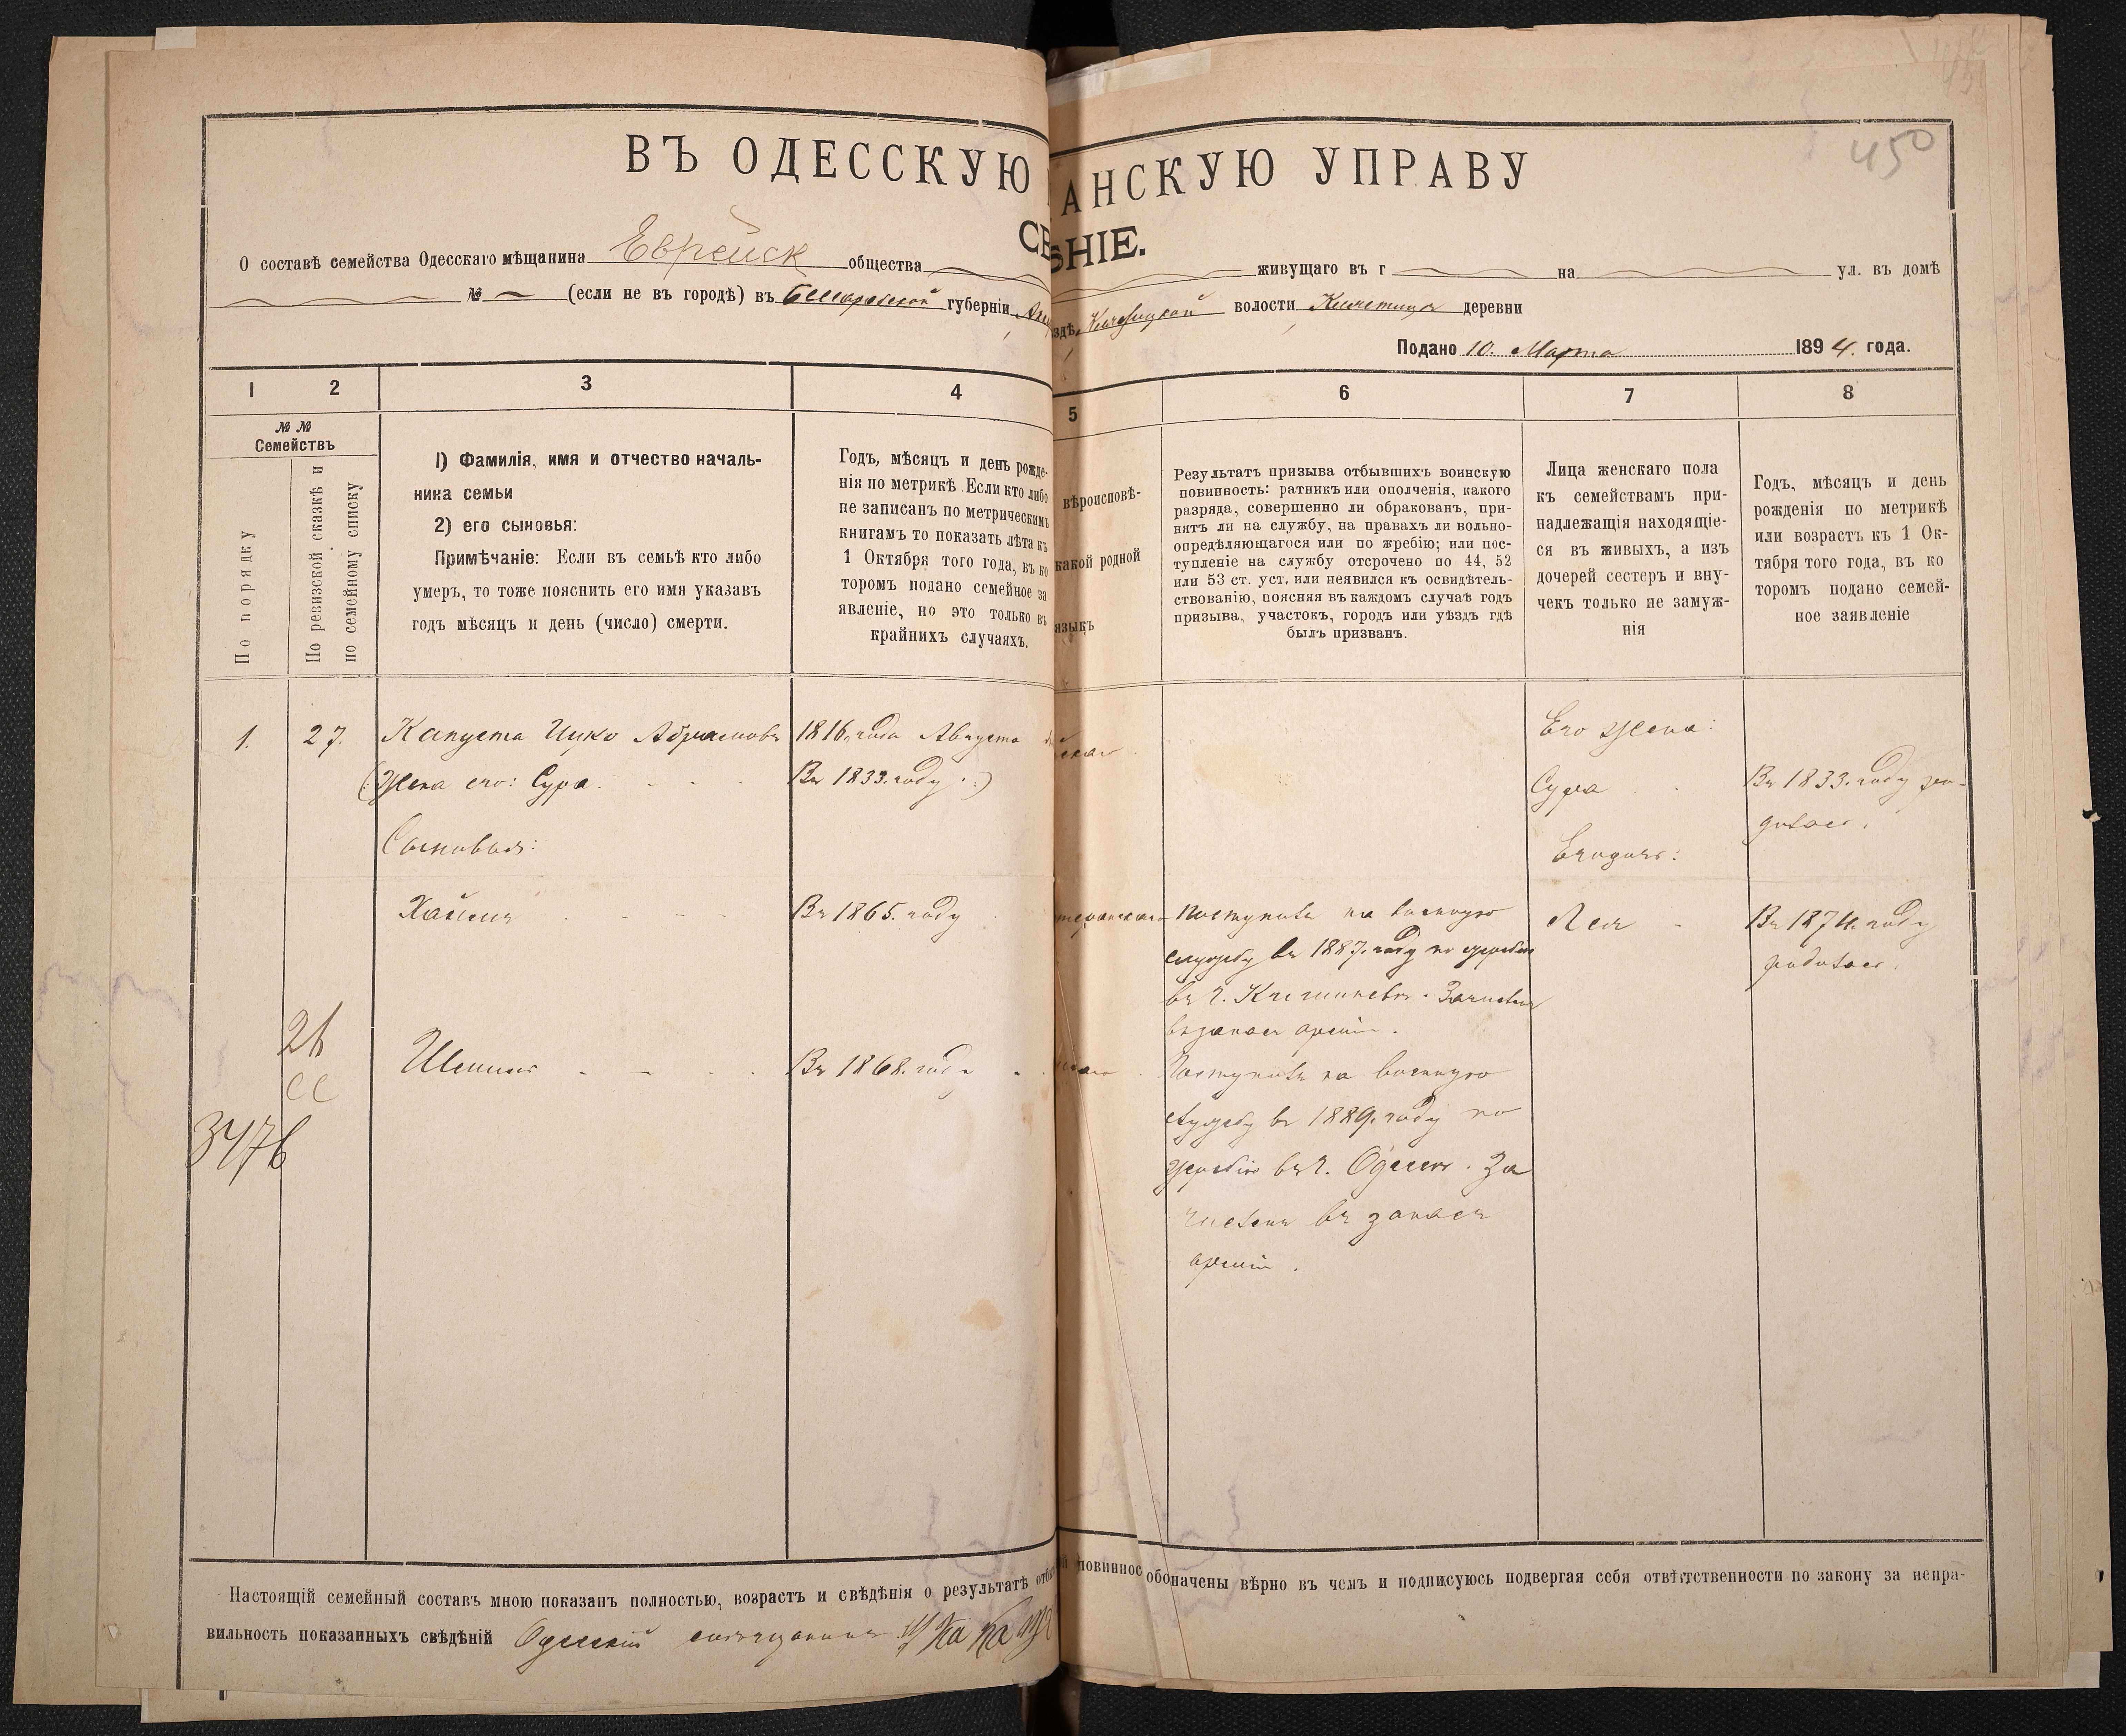 450
ВЪ ОДЕССКУЮ АНСКУЮ УПРАВУ
СВ ѢНІЕ.
О составѣ семейства Одесскаго мѣщанина Еврейск общества живущаго въ г на ул. въ домѣ
№ — (если не въ городѣ) въ Бессарабской губерніи Акк здѣ, волости деревни
Подано 10. Марта 1894. года.
1 2 3 4 5 6 7 8
№ №
Семействъ
По порядку
По ревизской сказкѣ и
по семейному списку
1) Фамилія, имя и отчество началь-
ника семьи
2) его сыновья:
Примѣчаніе: Если въ семьѣ кто либо
умеръ, то тоже пояснить его имя указавъ
годъ мѣсяцъ и день (число) смерти.
Годъ, мѣсяцъ и день рожде-
нія по метрикѣ. Если кто либо
не записанъ по метрическимъ
книгамъ то показать лѣта къ
1 Октября того года, въ ко
торомъ подано семейное за
явленіе, но это только въ
крайнихъ случаяхъ.
вѣроисповѣ-
какой родной
языкъ
Результатъ призыва отбывшихъ воинскую
повинность: ратникъ или ополченія, какого
разряда, совершенно ли обракованъ, при-
нятъ ли на службу, на правахъ ли вольно-
опредѣляющагося или по жребію; или пос-
тупленіе на службу отсрочено по 44, 52
или 53 ст. уст. или неявился къ освидѣтель-
ствованію, поясняя въ каждомъ случаѣ годъ
призыва, участокъ, городъ или уѣздъ гдѣ
былъ призванъ.
Лица женскаго пола
къ семействамъ при-
надлежащія находящіе-
ся въ живыхъ, а изъ
дочерей сестеръ и вну-
чекъ только не замуж-
нія
Годъ, мѣсяцъ и день
рожденія по метрикѣ
или возрастъ къ 1 Ок-
тября того года, въ ко
торомъ подано семей-
ное заявленіе
1. 27. Капуста Ицко Абрамовъ 1816. года Августа
Его жена:
(Жена его: Сура. Въ 1833. году.)
Сура Въ 1833. году ро-
дилась.
Сыновья:
Хаимъ Въ 1865. году
Поступилъ на военную
службу въ 1887. году по жребію
въ г. Кишиневѣ. Зачисленъ
въ запасъ арміи.
Лея Въ 1874. году
родилась.
26
3476
Шлима Въ 1868. году
Поступилъ на военную
службу въ 1889. году по
жребію въ г. Одессѣ. За
численъ въ запасъ
арміи.
Настоящій семейный составъ мною показанъ полностью, возрастъ и свѣдѣнія о результатѣ отбы й повиннос обозначены вѣрно въ чемъ и подписуюсь подвергая себя отвѣтственности по закону за непра-
вильность показанныхъ свѣдѣній Одесскій мѣщанинъ